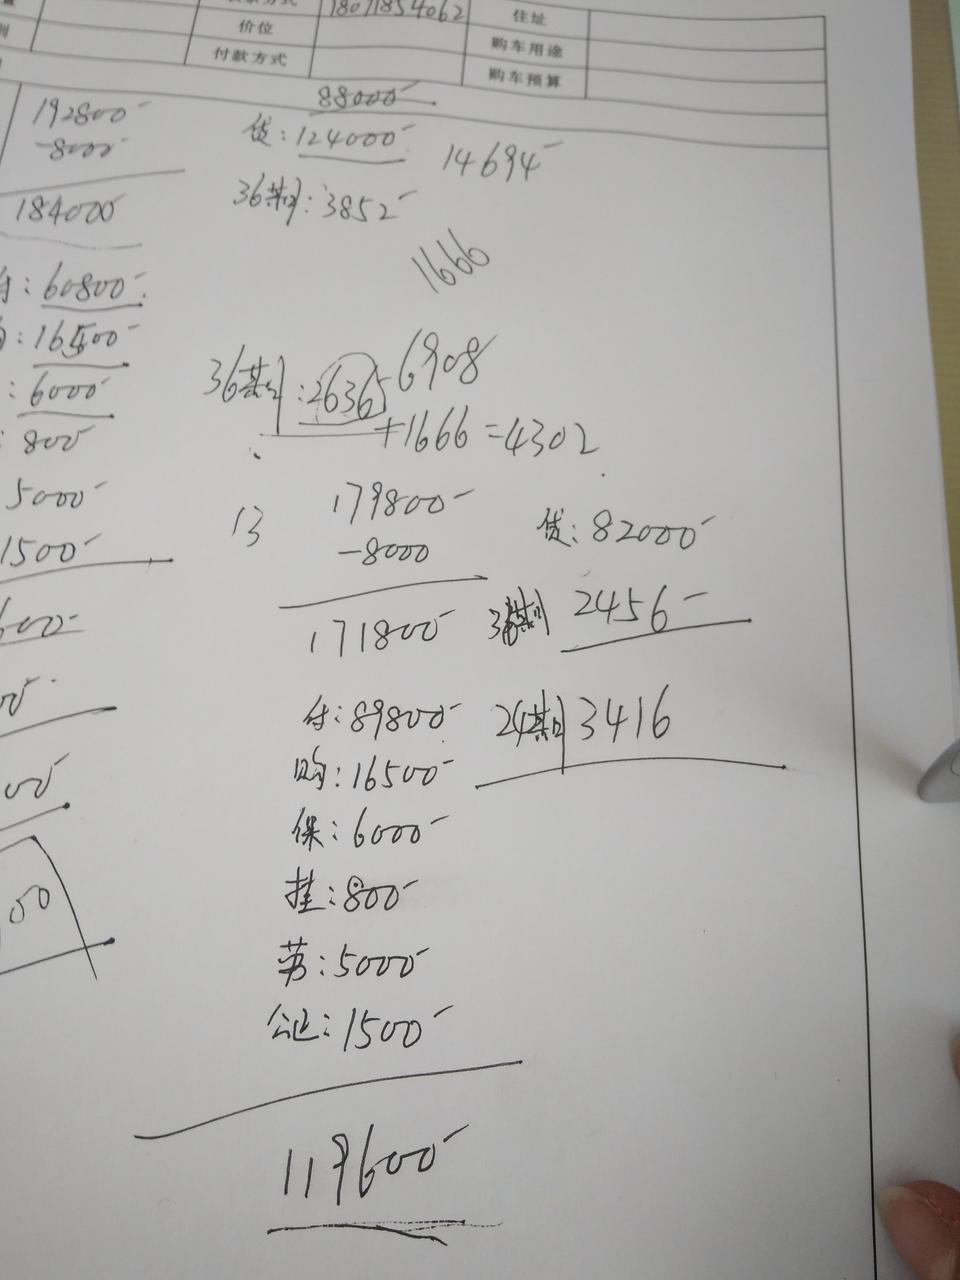 18071854062
住址
价位
购车用途
付款方式
购车预算
88000
192800
-8000
184000
贷:124000
14694
36期:3852
1666
:60800
:16500
:6000
:800
5000
1500
36期:26365
6908
+1666=4302
13
179800
-8000
171800
贷:82000
36期 2456
24期 3416
付:89800
购:16500
保:6000
挂:800
劳:5000
公证:1500
119600